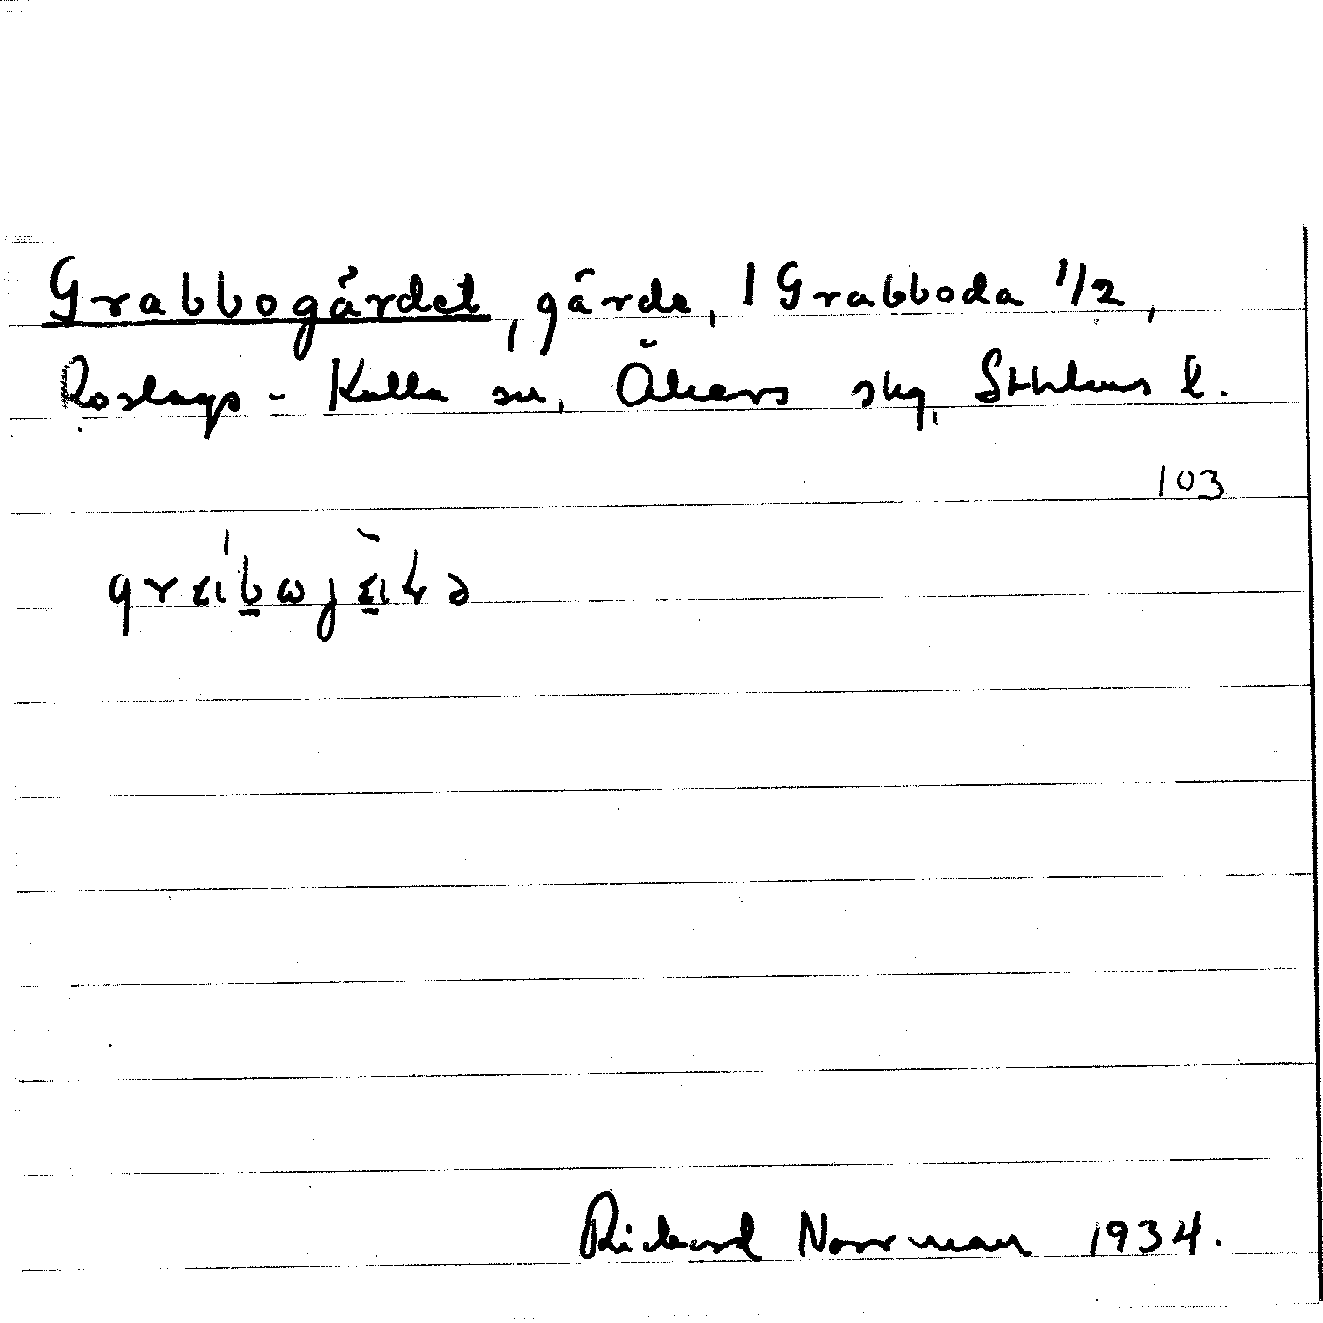 Grabbogärdet, gärde, 1 Grabboda 1/2,
Roslags-Kulla sn, Åkers skg, Sthlms l.
103
Rickard Norrman 1934.